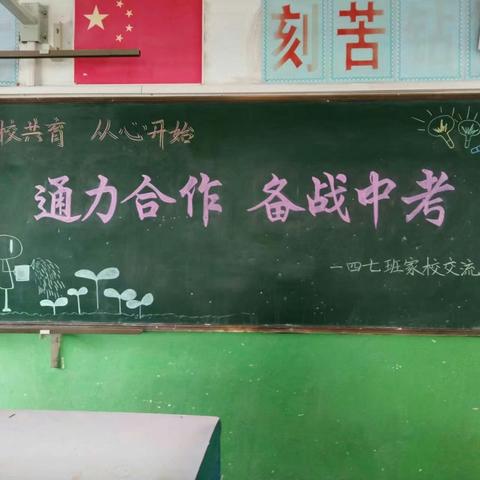 刻苦
校共育 从心开始
通力合作 备战中考
一四七班家校交流